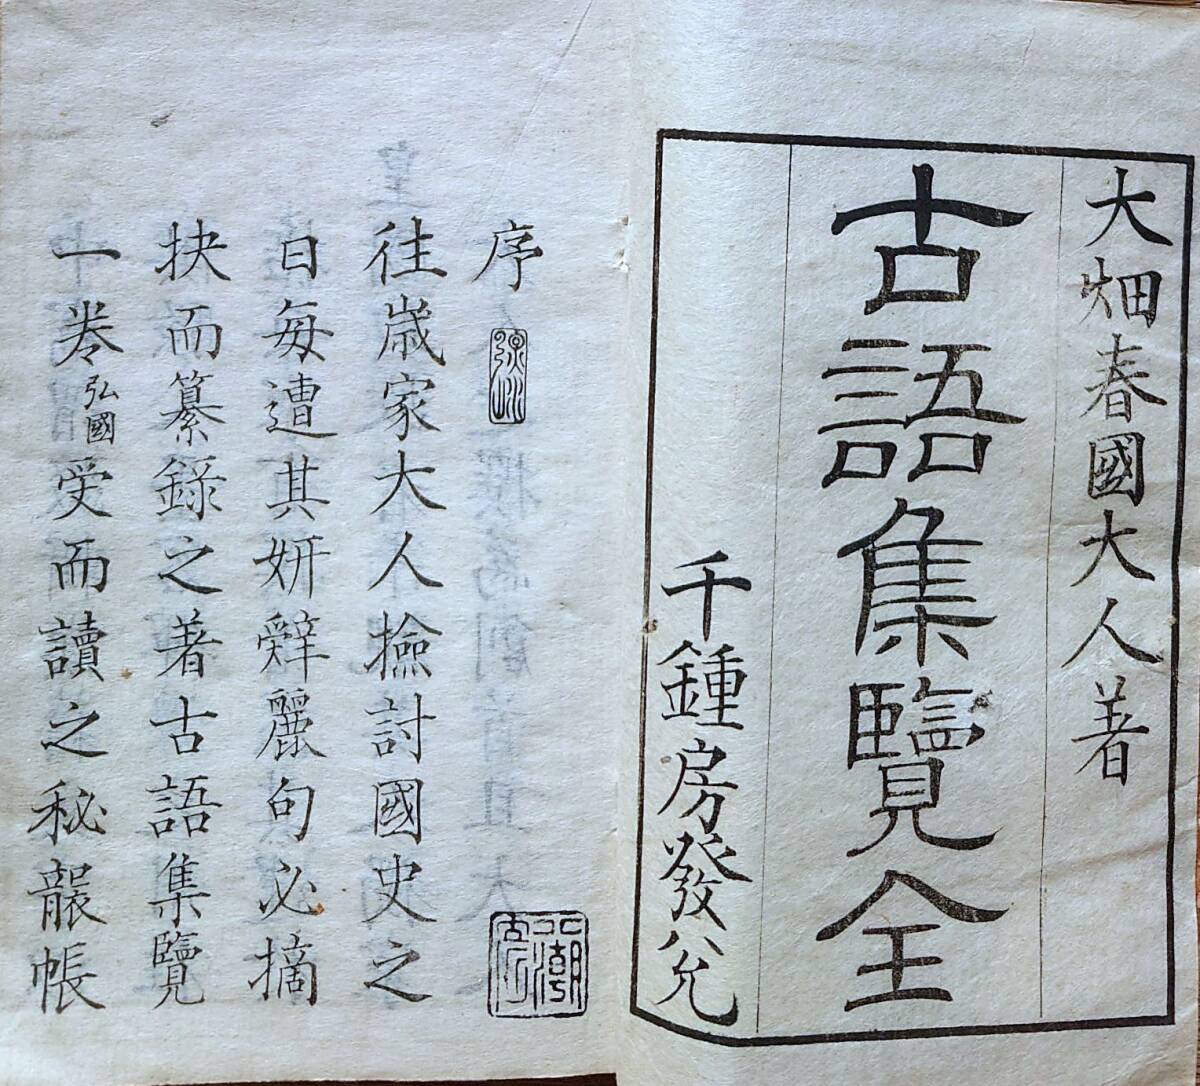 大畑春國大人著
古語集覽全
千鍾房發兊
序
往歳家大人撿討國史之
日每遭其妍辤麗句必摘
抉而纂錄之著古語集覽
一卷弘國受而讀之秘襲帳